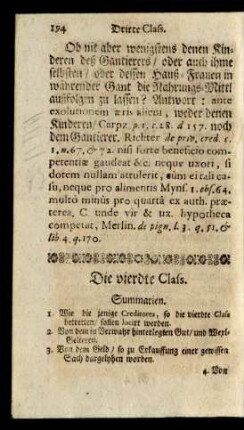 194 Dritte Class.
Ob nit aber wenigstens denen Kin-
deren deß Gantierers/ oder auch ihme
selbsten/ oder dessen Hauß-Frauen in
währender Gant die Nahrungs-Mittl
außfolgen zu lassen? Antwort: ante
exolutionem æris alieni, weder denen
Kinderen/ Carpz. p. 1. c. 28. d 157. noch
dem Gantierer. Richter de priv. cred. c.
1. n. 67. & 72. nisi forte beneficio com-
petentiæ gaudeat &c. neque uxori, si
dotem nullam attulerit, cùm ei tali ca-
su, neque pro alimentis Myns. 1. obs. 64.
multò minùs pro quartâ ex auth. præ-
terea, C. unde vir & ux. hypotheca
competat, Merlin. de pign. l. 3. q. 51. &
lib 4. q. 170.
Die vierdte Class.
Summarien.
1. Wie die jenige Creditores, so die vierdte Class
betretten/ sollen locirt werden.
2. Von dem in Verwahr hinterlegten Gut/ und Weyl-
Gelteren.
3. Von dem Geld/ so zu Erkauffung einer gewissen
Sach dargelyhen worden.
4. Von